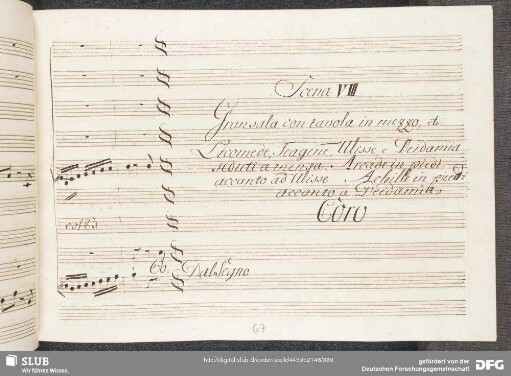 Scena VIII
Gran sala con tavola in mezzo, e
Licomede, Teagene, Ulisse e Deidamia
sedenti a mensa. Arcade in piedi
accanto ad Ulisse Achille in piedi
accanto a Deidamia
Còro
col Bs
Dal Segno
67
SLUB
Wir führen Wissen.
gefördert von der
Deutschen Forschungsgemeinschaft
DFG